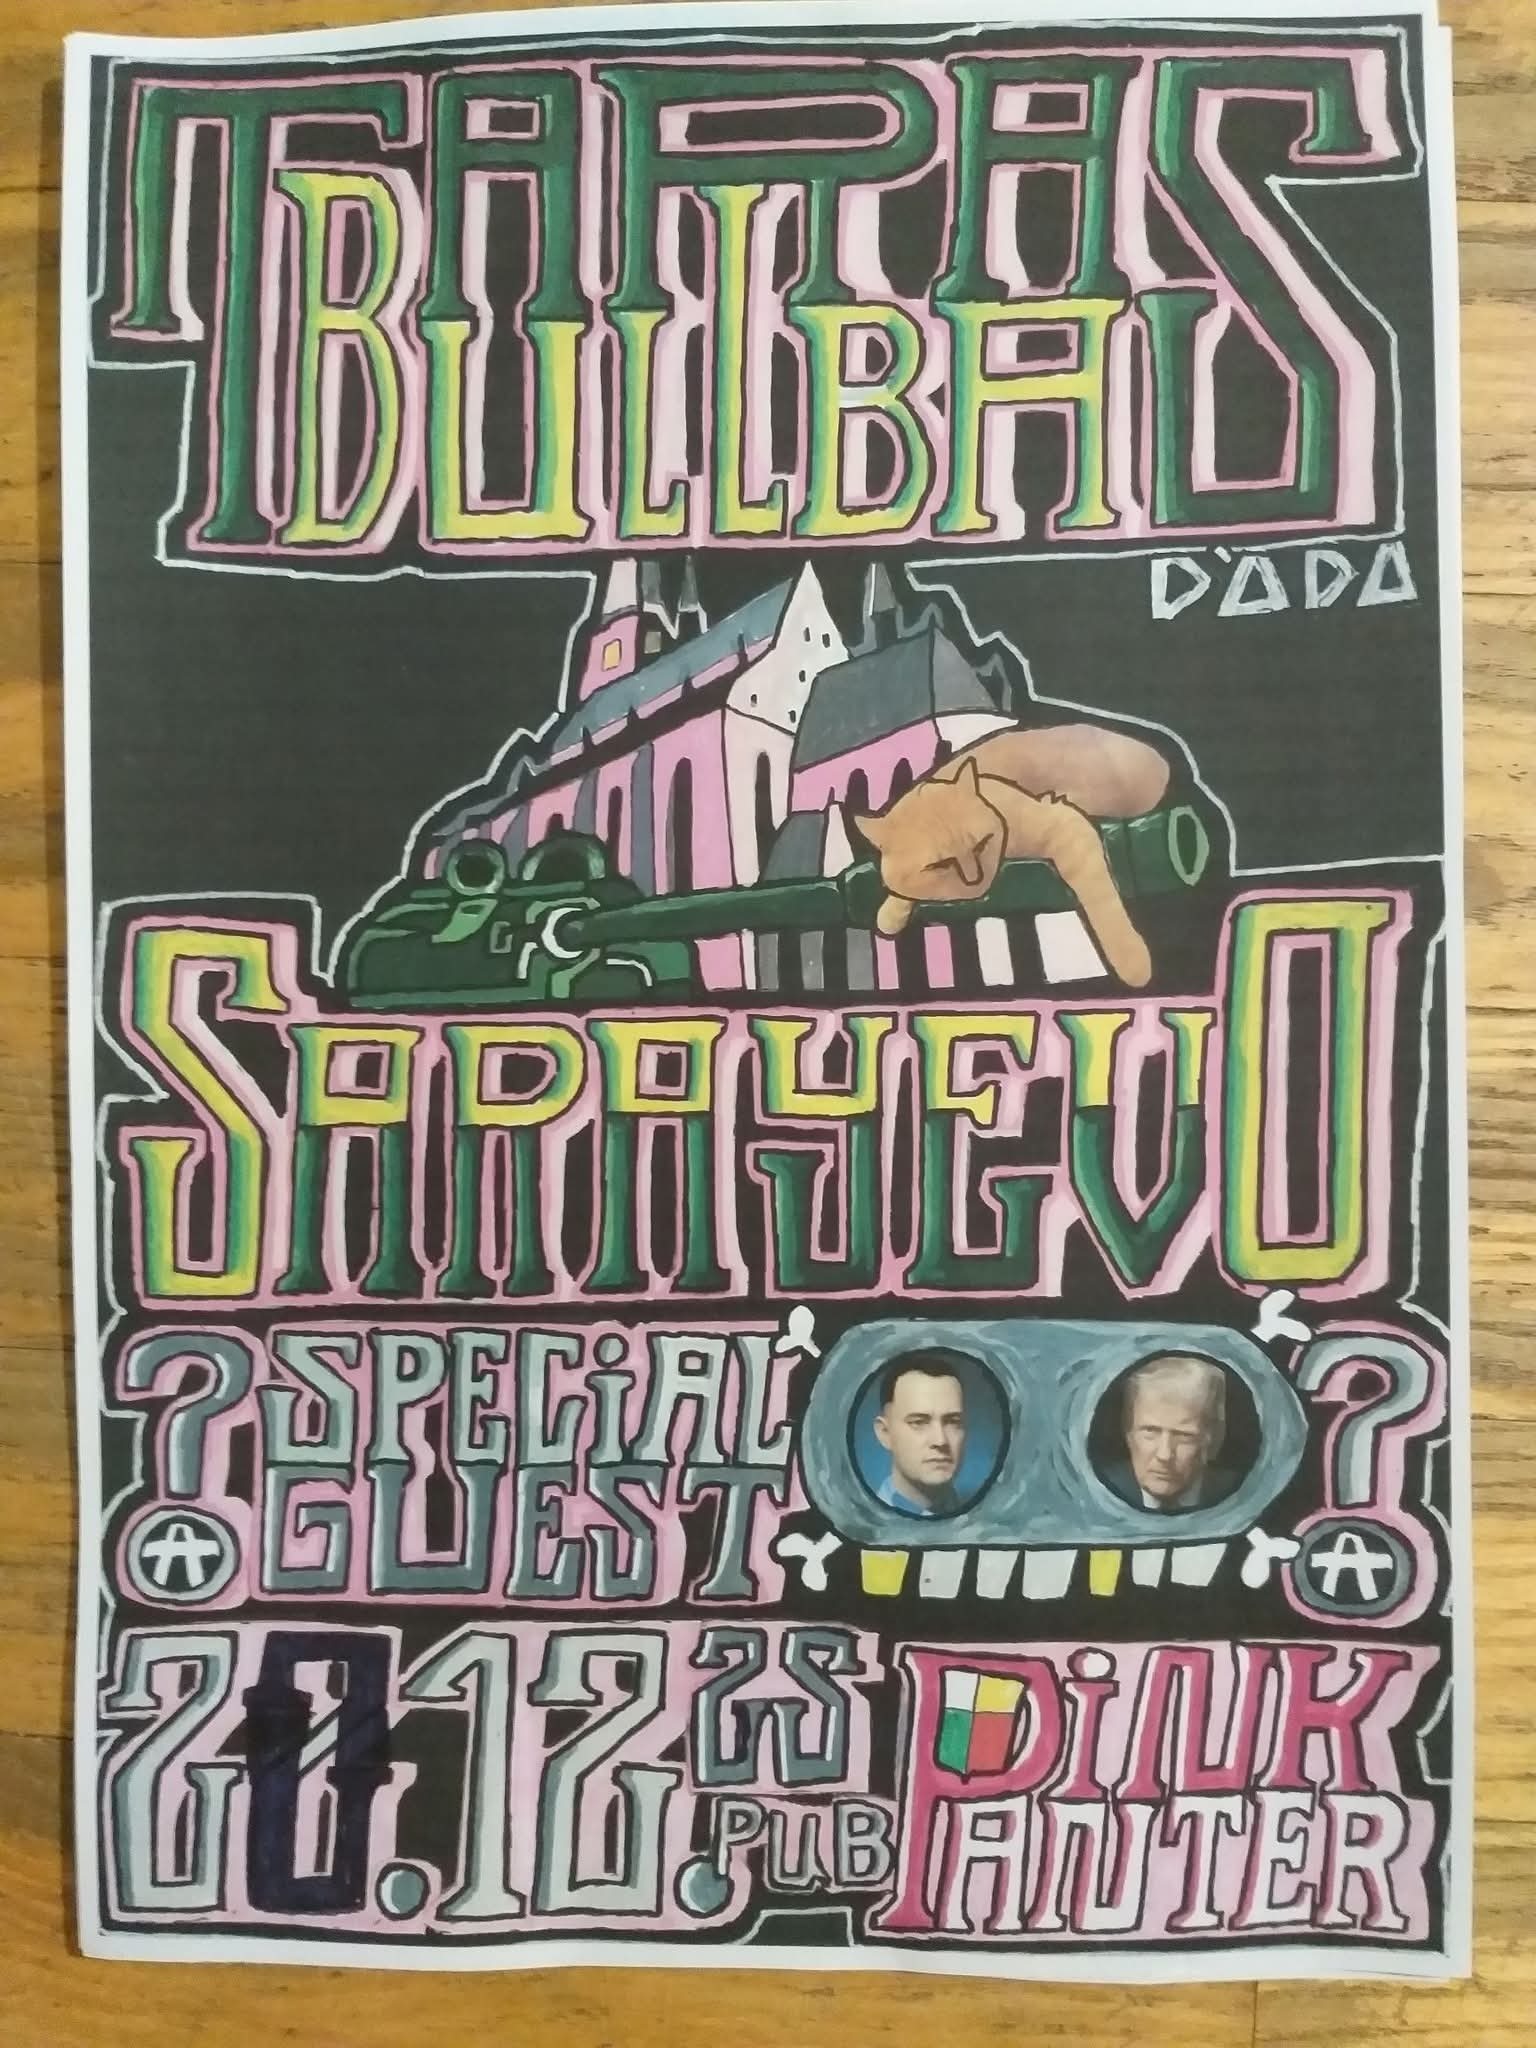 TARAS
BULLBA
D'ADA
SARAYEVO
? SPECiAL ?
GUEST
20.12. 25
PUB PiNK
PANTER